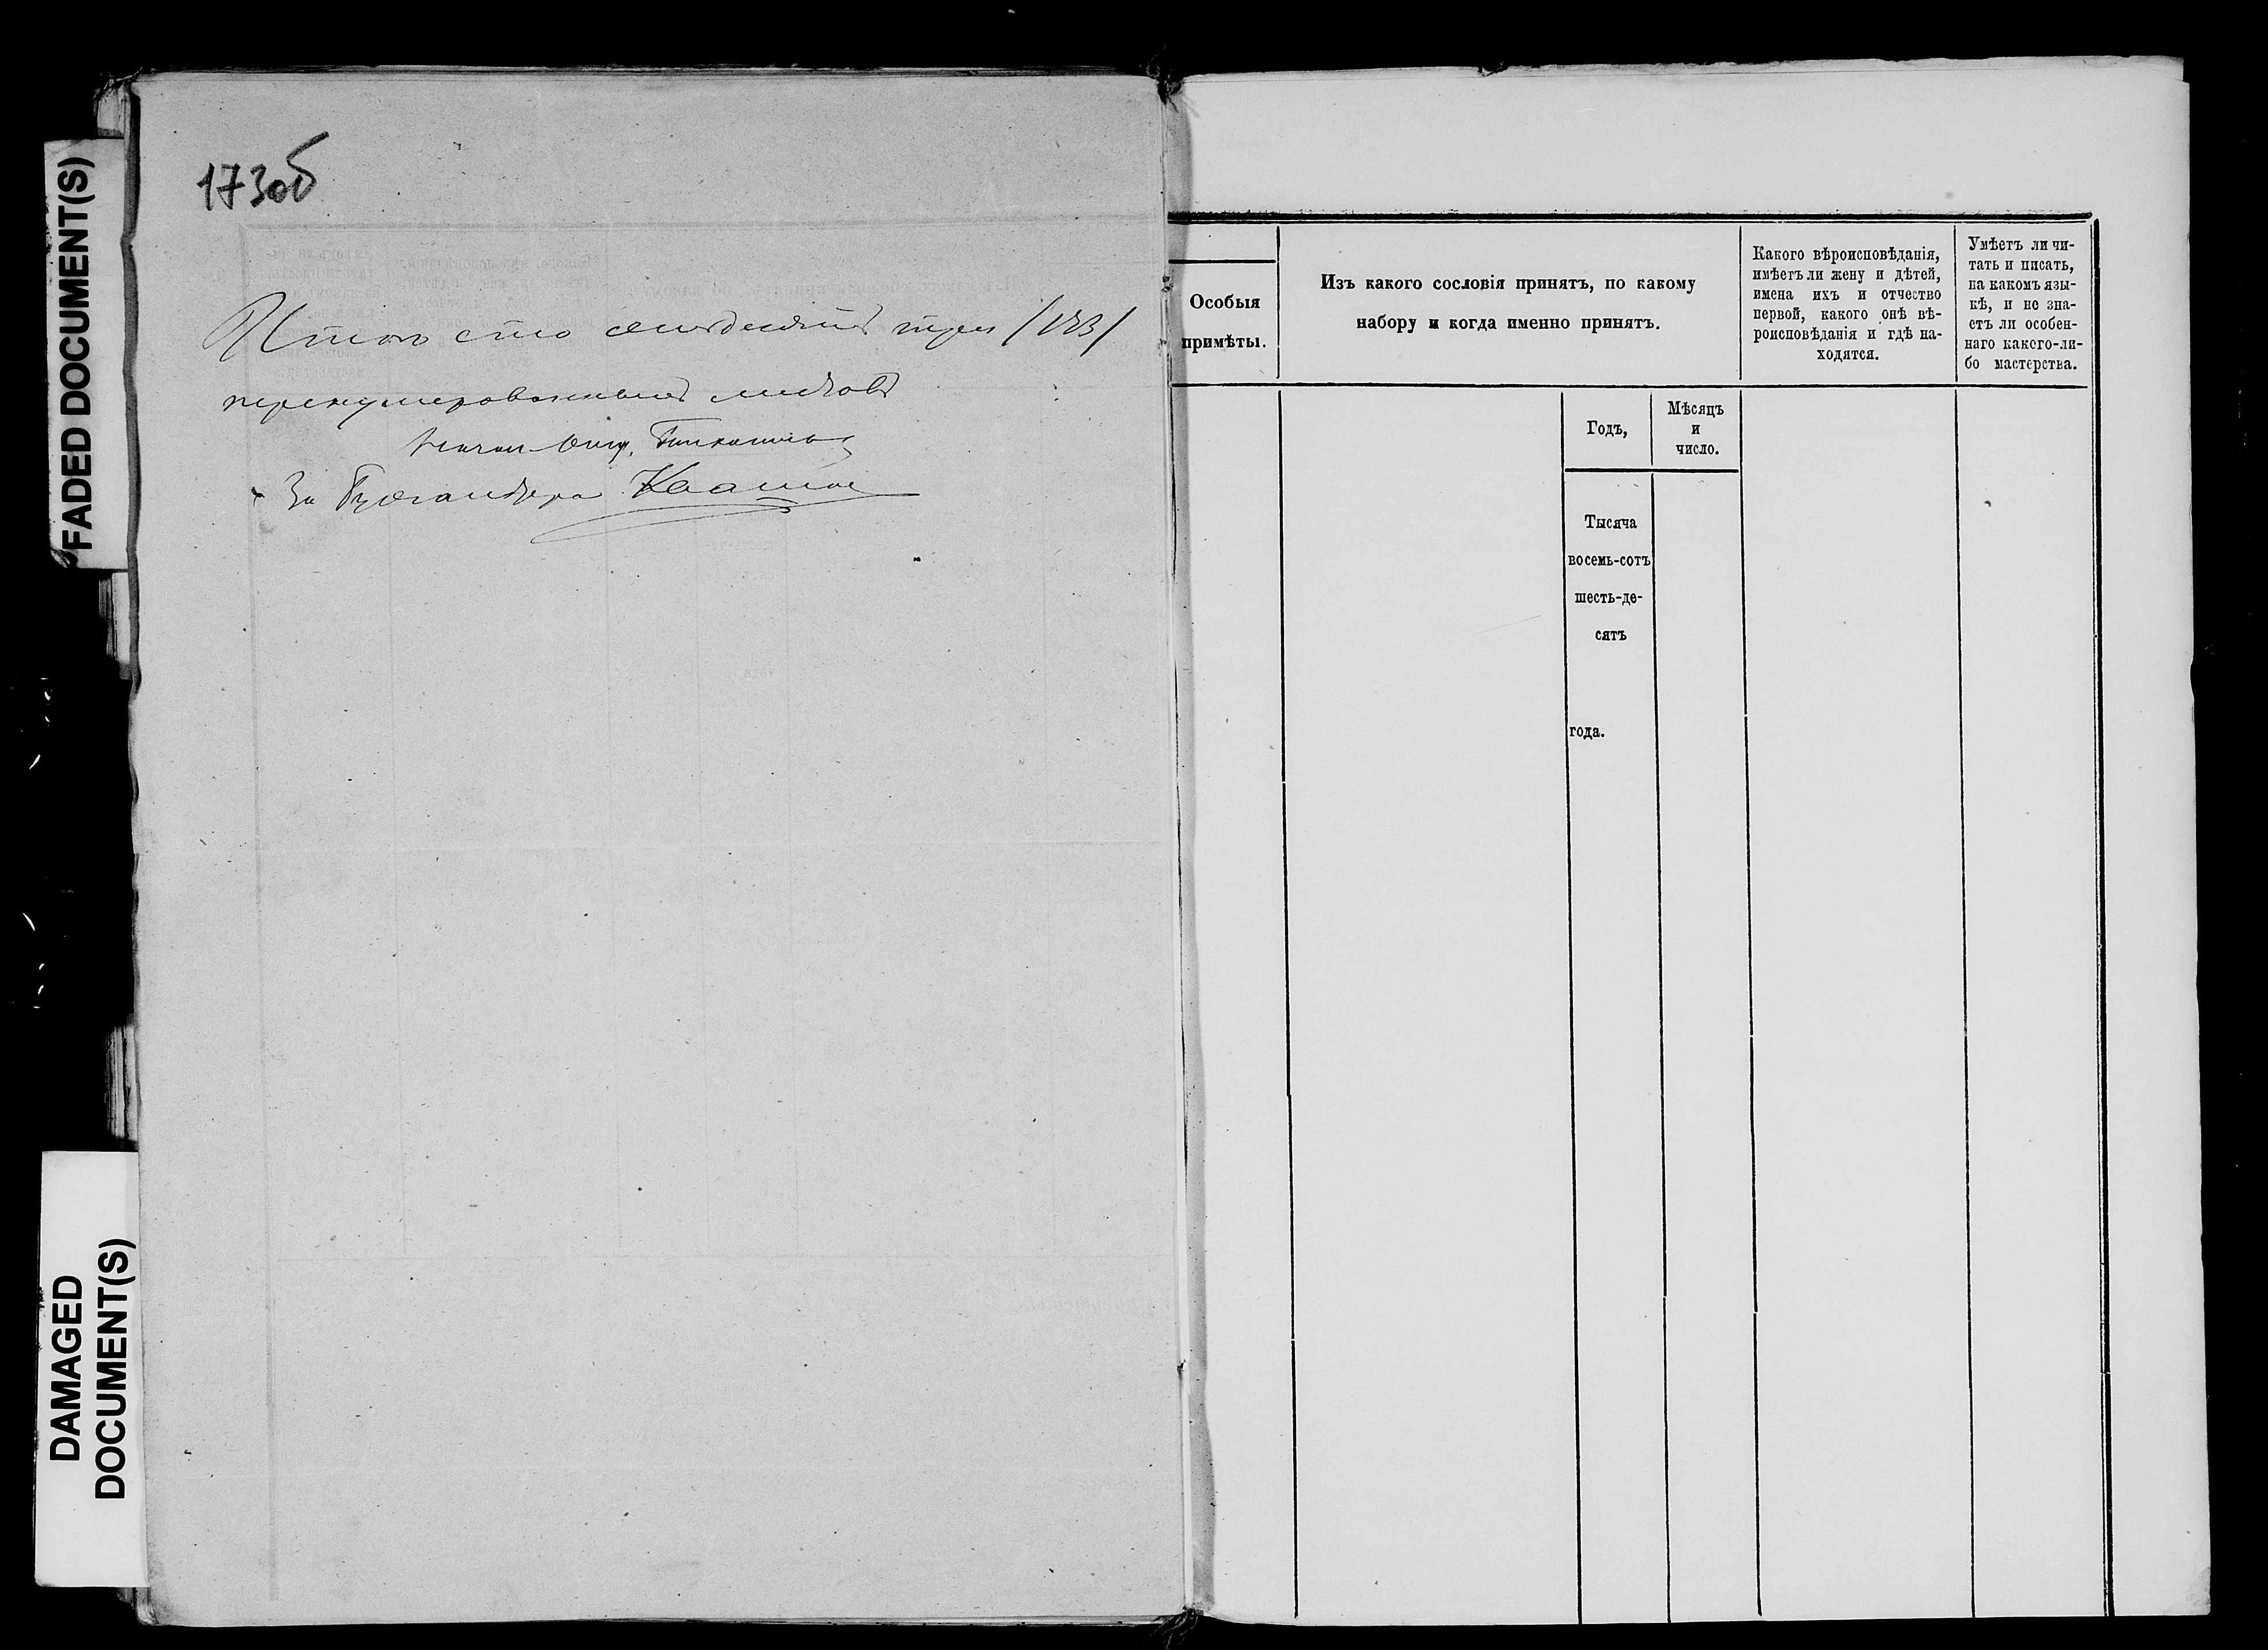 FADED DOCUMENT(S)
DAMAGED
DOCUMENT(S)
173об
Итого сто семьдесятъ три /173/
перенумерованныхъ листовъ
За Бухгалтера
Особыя
примѣты.
Изъ какого сословія принятъ, по какому
набору и когда именно принятъ.
Какого вѣроисповѣданія,
имѣетъ ли жену и дѣтей,
имена ихъ и отчество
первой, какого онѣ вѣ-
роисповѣданія и гдѣ на-
ходятся.
Умѣетъ ли чи-
тать и писать,
на какомъ язы-
кѣ, и не зна-
етъ ли особен-
наго какого-ли-
бо мастерства.
Годъ,
Мѣсяцъ
и
число.
Тысяча
восемь-сотъ
шесть-де-
сятъ
года.